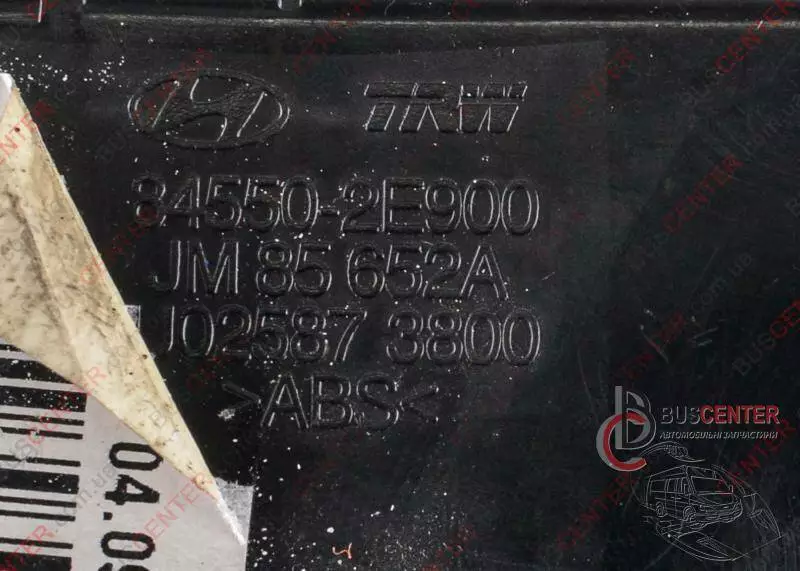 TRW
84550-2E900
JM 85 652A
U02587 3800
>ABS<
04.09
BUSCENTER
АВТОМОБІЛЬНІ ЗАПЧАСТИНИ